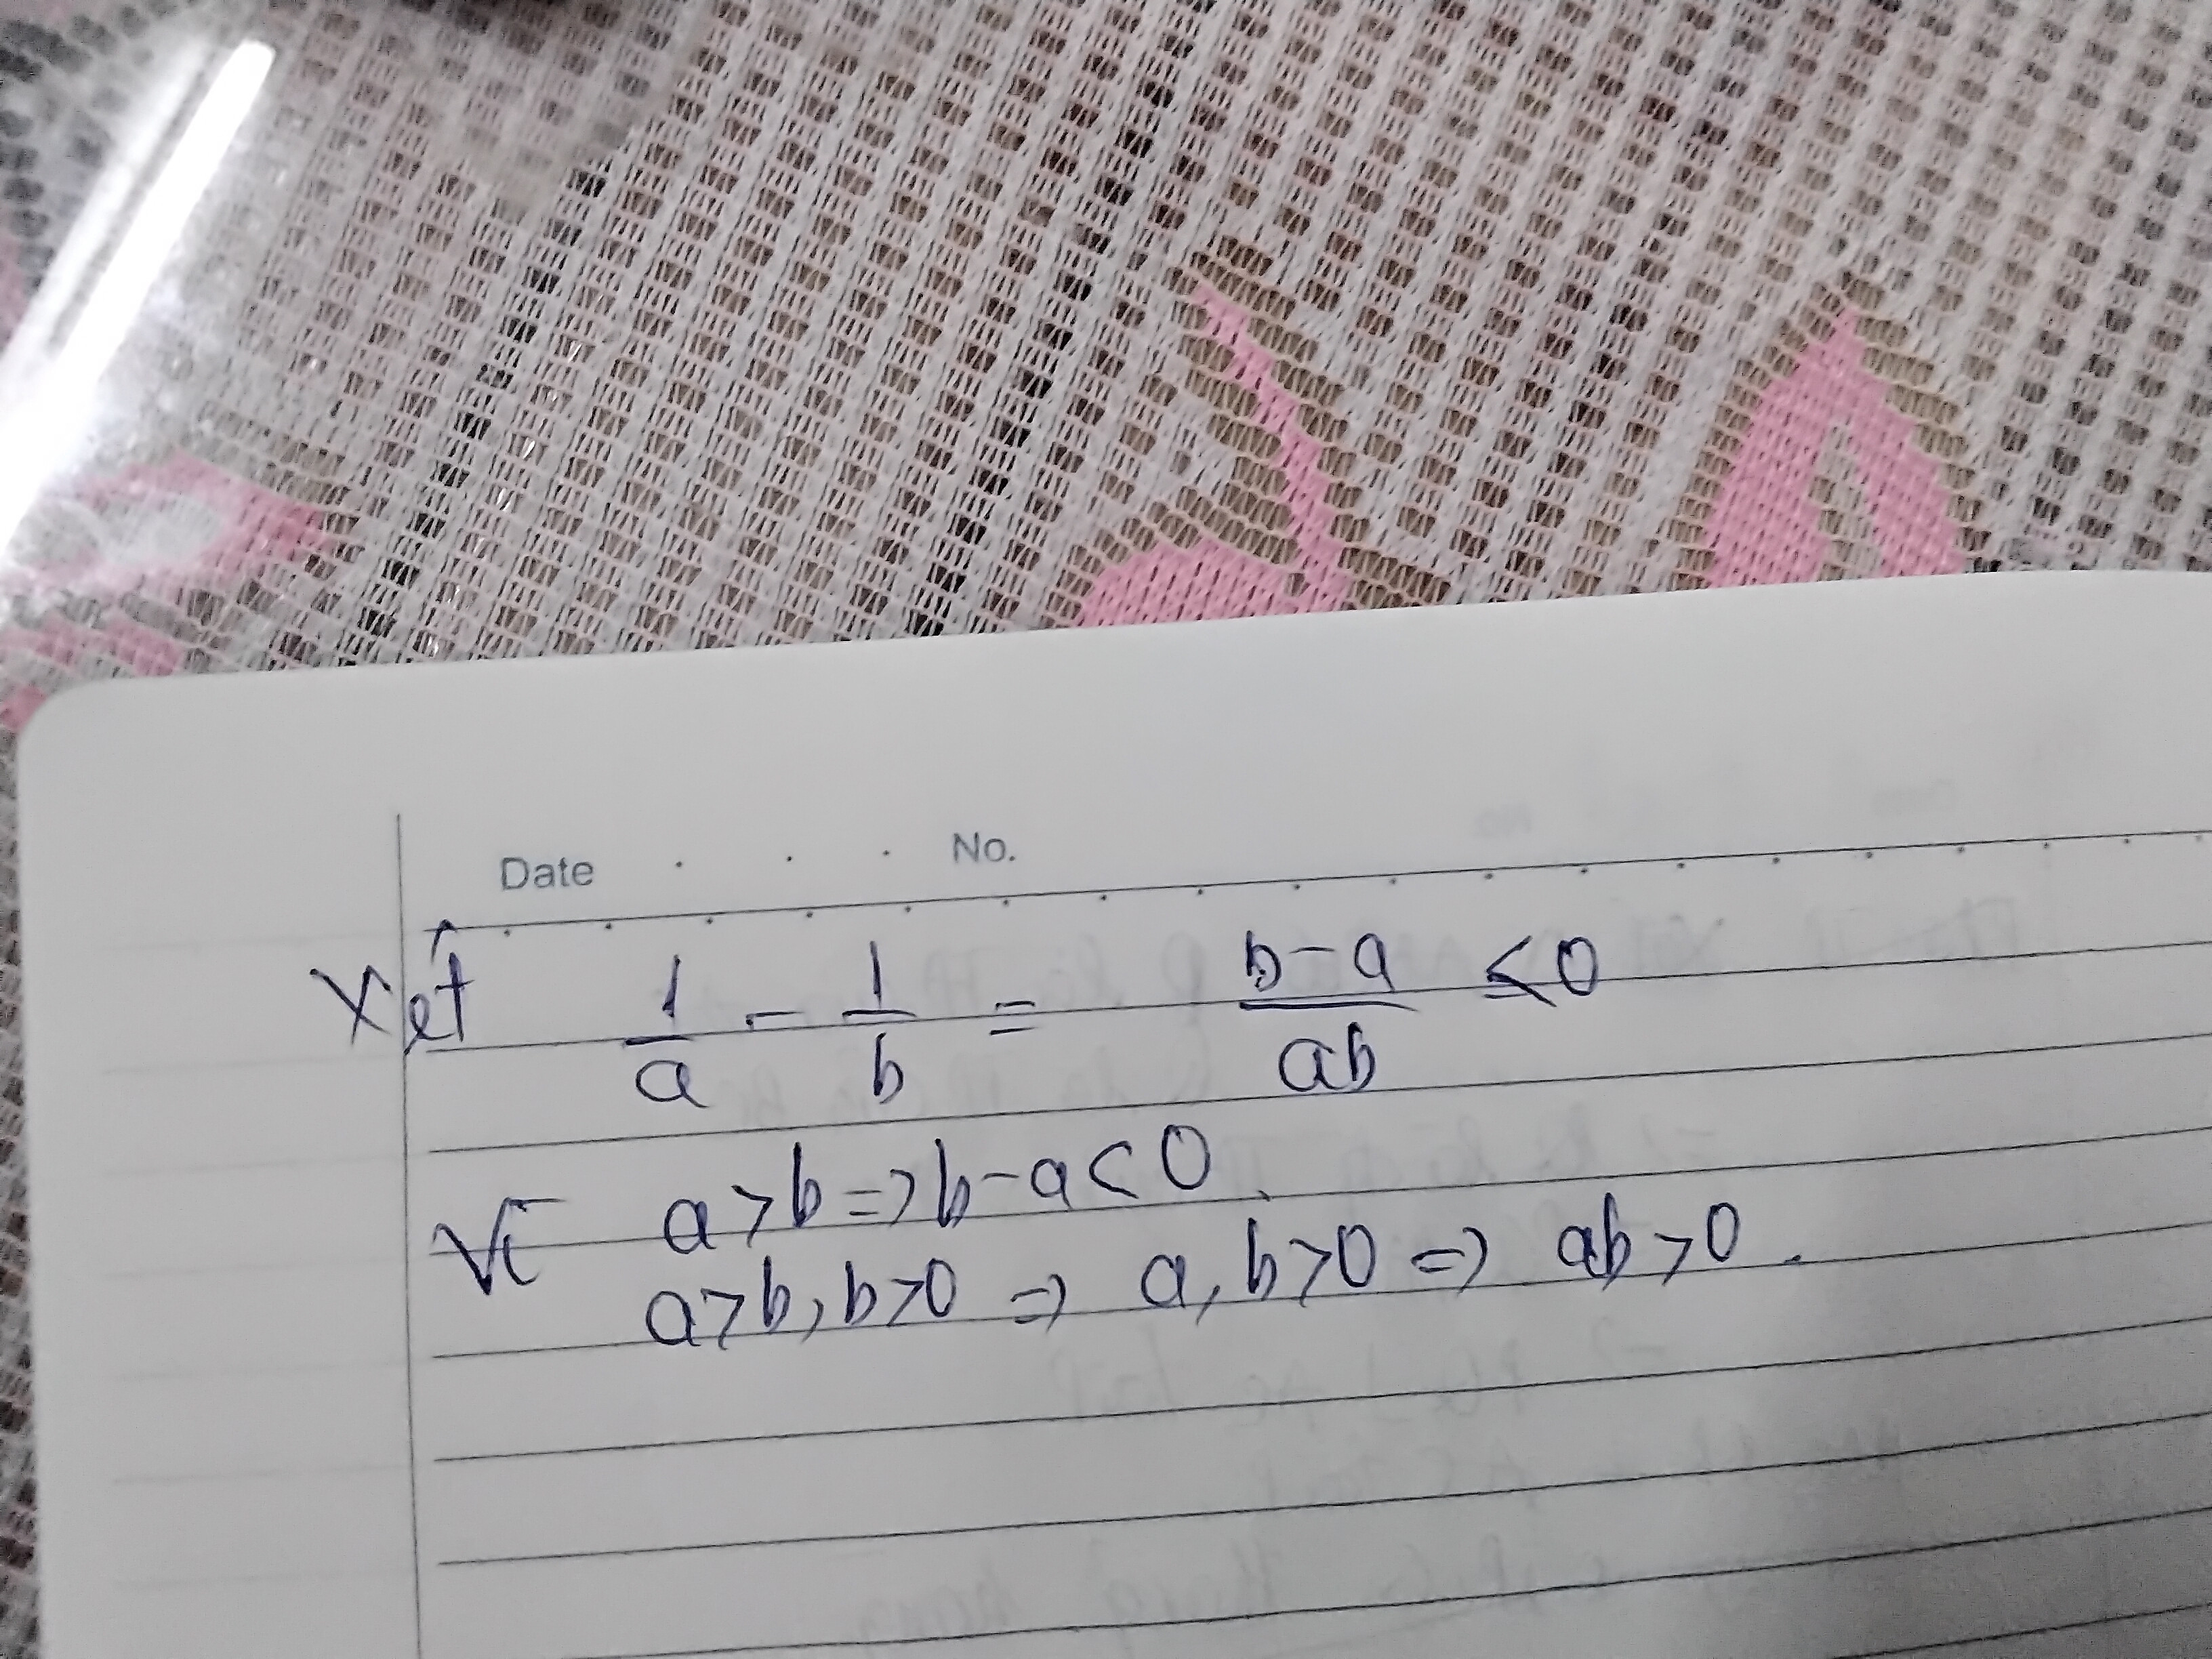 Date . . . No.
Xét 1/a - 1/b = b-a/ab ≤ 0
Vì a > b => b - a < 0.
a > b, b > 0 => a, b > 0 => ab > 0.